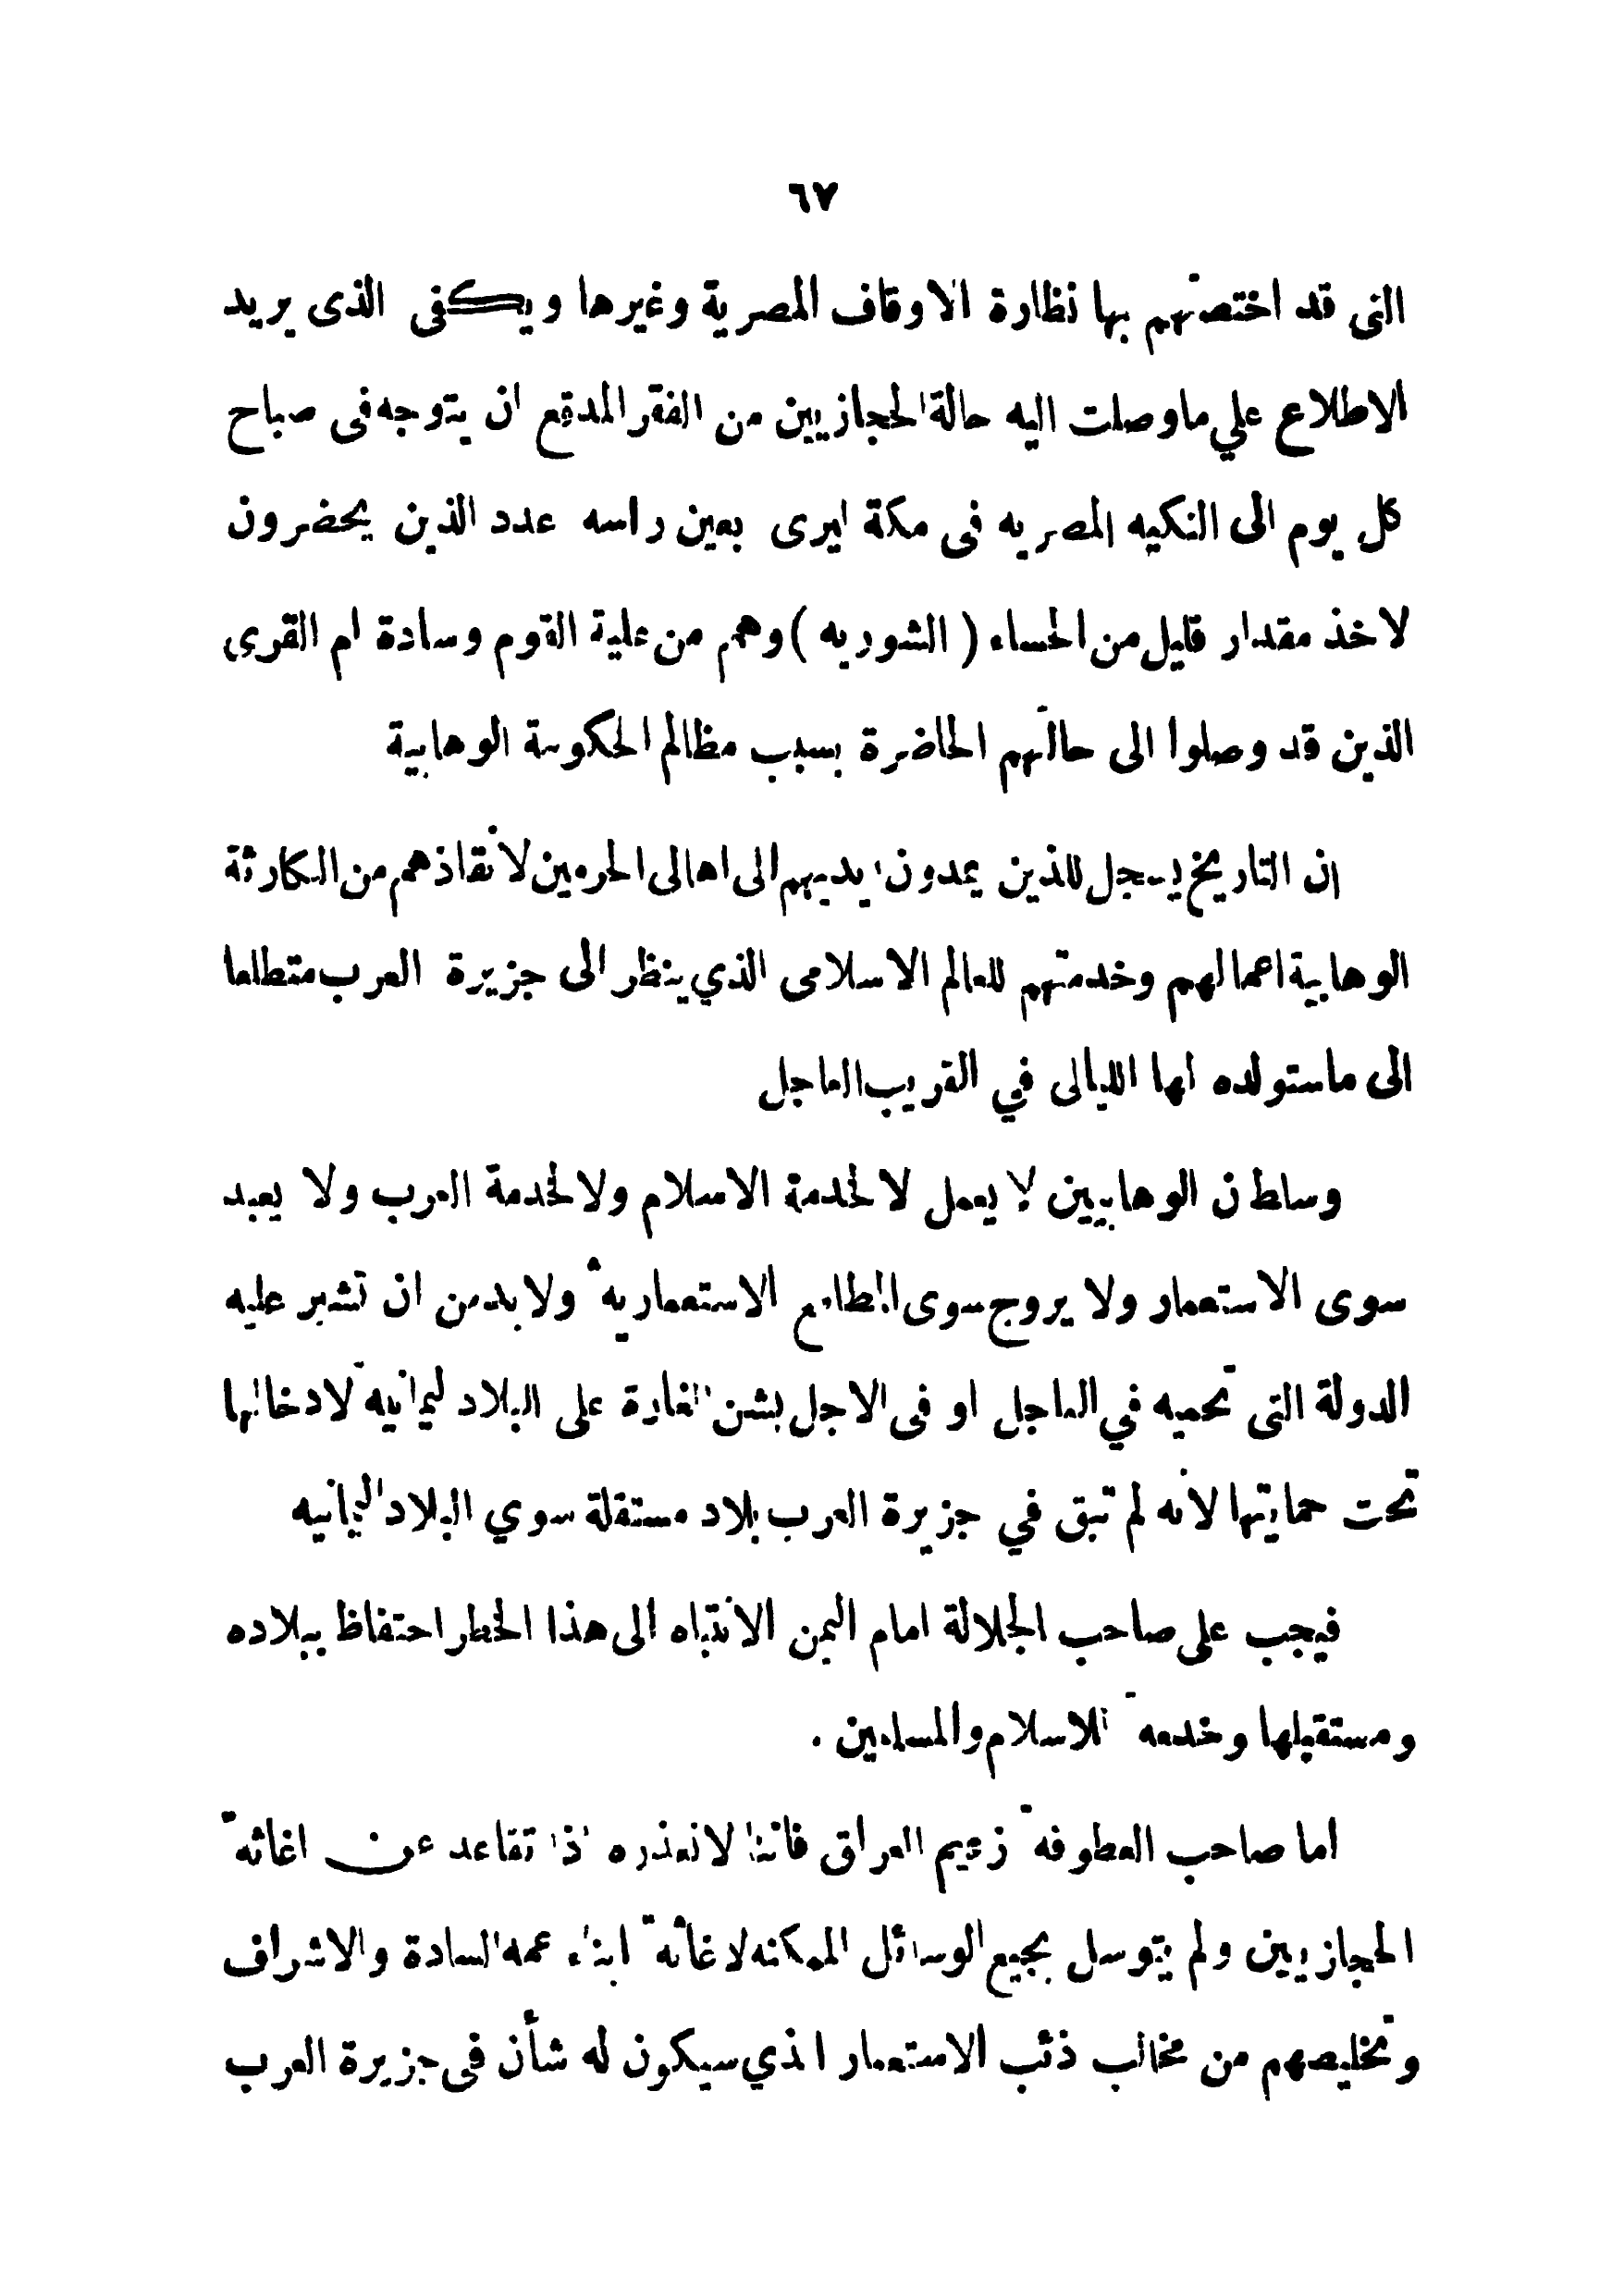 ٦٧
التى قد اختصتهم بها نظارة الاوقاف المصرية وغيرها ويكفى الذى يريد
الاطلاع علي ماوصلت اليه حالة الحجازيين من الفقر المدقع ان يتوجه فى صباح
كل يوم الى التكيه المصريه فى مكة ليرى بعين راسه عدد الذين يحضرون
لاخذ مقدار قليل من الحساء ( الشوربه ) وهم من علية القوم وسادة ام القرى
الذين قد وصلوا الى حالتهم الحاضرة بسبب مظالم الحكومة الوهابية
ان التاريخ يسجل للذين يمدون ايديهم الى اهالى الحرمين لانقاذهم من الكارثة
الوهابية اعمالهم وخدمتهم للعالم الاسلامى الذي ينظر الى جزيرة العرب متطلعا
الى ماستولده لها الليالى في القريب العاجل
وسلطان الوهابيين لا يعمل لا لخدمة الاسلام ولا لخدمة العرب ولا يعبد
سوى الاستعمار ولا يروج سوى المطامع الاستعمارية ولا بد من ان تشير عليه
الدولة التى تحميه في العاجل او فى الاجل بشن الغارة على البلاد اليمانية لادخالها
تحت حمايتها لانه لم تبق في جزيرة العرب بلاد مستقلة سوي البلاد اليمانيه
فيجب على صاحب الجلالة امام اليمن الانتباه الى هذا الخطر احتفاظ ببلاده
ومستقبلها وخدمة للاسلام والمسلمين .
اما صاحب العطوفة زعيم العراق فاننا لانعذره اذا تقاعد عن اغاثة
الحجازيين ولم يتوسل بجميع الوسائل الممكنه لاغاثة ابناء عمه السادة والاشراف
وتخليصهم من مخالب ذئب الاستعمار الذي سيكون له شأن فى جزيرة العرب